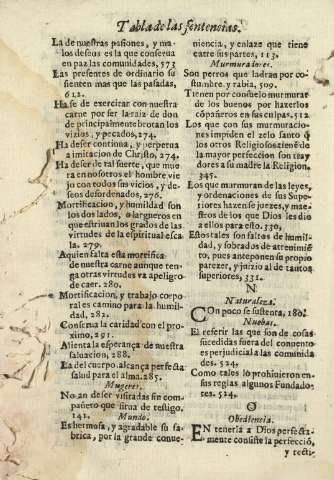 Tabla de las sentencias.
La de nuestras pasiones, y ma-
los deseos es la que conserua
en paz las comunidades, 573
Las presentes de ordinario se
sienten mas que las pasadas,
612.
Ha se de exercitar con nuestra
carne por ser la raiz de don
de principalmente brotan los
vizios, y pecados, 274.
Ha de ser continua, y perpetua
a imitacion de Christo, 274.
Ha de ser de tal suerte, que mue
ra en nosotros el hombre vie
jo con todos sus vicios, y de-
seos desordenados, 276.
Mortificacion, y humildad son
los dos lados, o largueros en
que estriuan los grados de las
virtudes de la espiritual esca
la. 279.
A quien falta esta mortifica
de nuestra carne aunque ten-
ga otras virtudes va a peligro
de caer. 280.
Mortificacion, y trabajo corpo
ral es camino para la humil-
dad, 282.
Conserua la caridad con el pro
ximo, 291.
Alienta la esperança de nuestra
saluacion, 288.
La del cuerpo alcança perfecta
salud para el alma. 285.
Mugeres.
No an de ser visitadas sin com
pañero que sirua de testigo.
141.
Mundo.
Es hermosa, y agradable su fa-
brica, por la grande conue-
niencia, y enlaze que tiene
entre sus partes, 113.
Murmuradores.
Son perros que ladran por co-
stumbre. y rabia, 509.
Tienen por consuelo murmurar
de los buenos por hazerlos
cópañeros en sus culpas. 512
Los que con sus murmuracio-
nes impiden el zelo santo q̃
los otros Religiosos tienē de
la mayor perfeccion son tray
dores a su madre la Religion,
345.
Los que murmuran de las leyes,
y ordenaciones de sus Supe-
riores hazense juezes, y maes-
tros de los que Dios les dio
a ellos para esto, 330,
Estos tales son faltos de humil-
dad, y sobrados de atreuimiē
to, pues anteponen su propio
parezer, y juizio al de tantos
superiores, 331.
N
Naturaleza.
Con poco se sustenta, 180.
Nueuas.
El referir las que son de cosas
sucedidas fuera del conuento
es perjudicial a las comunida
des. 524.
Como tales lo prohiuieron en
sus reglas algunos Fundado-
res. 524.
O
Obediencia.
En tenerla a Dios perfecta-
mente consiste la perfecciõ,
y recti-